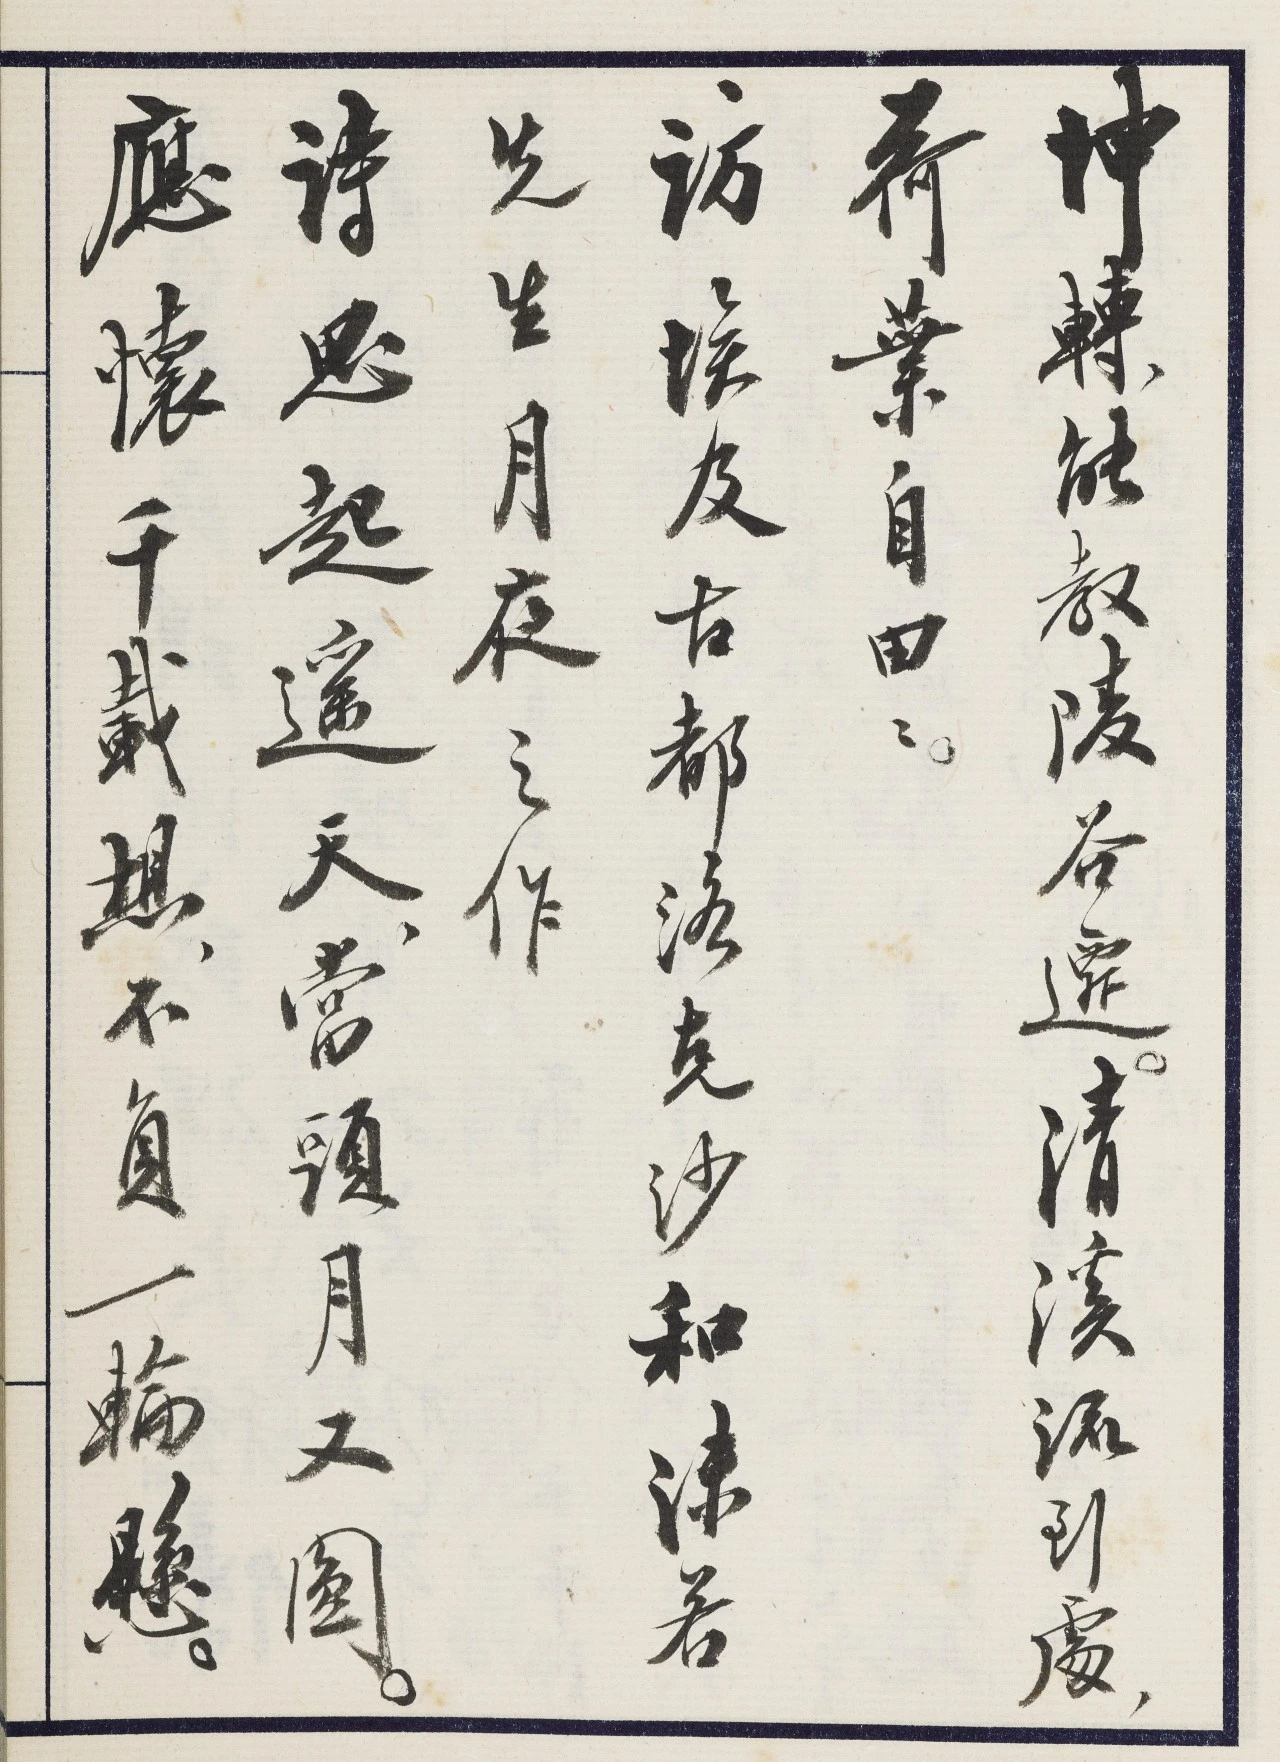 坤轉、能教陵谷遷。清溪流到處、
荷葉自田〻。
訪埃及古都洛克沙和沫若
先生月夜之作
詩思起遥天、當頭月又圓。
應懷千載想、不負一輪懸。